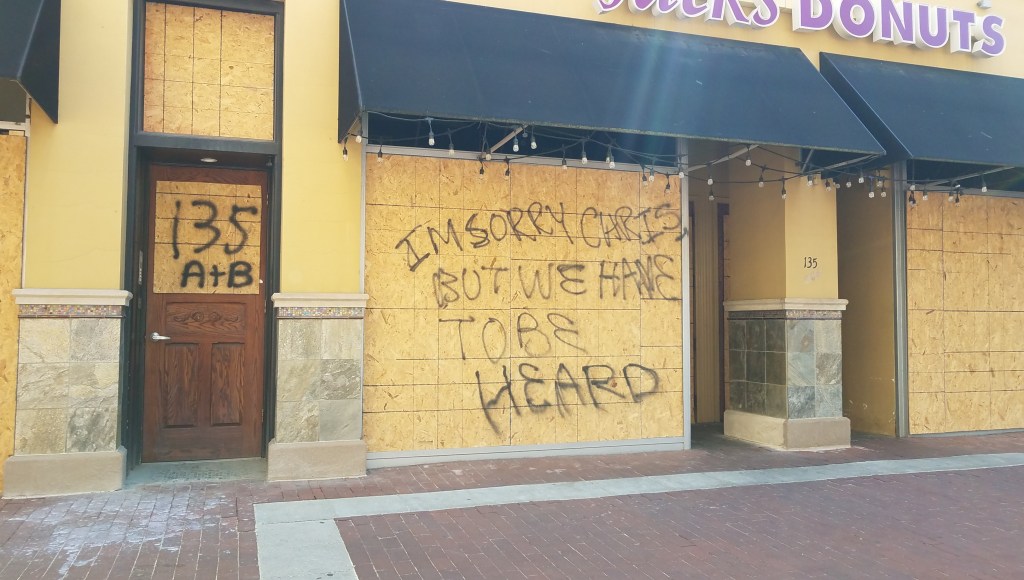 DONUTS
135
A+B
I'M SORRY CHRIS,
BUT WE HAVE
TO BE
HEARD
135